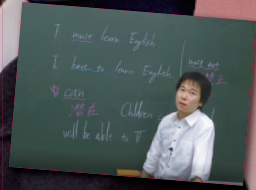 I must learn English
I have to learn English
must not
can
Children
will be able to V